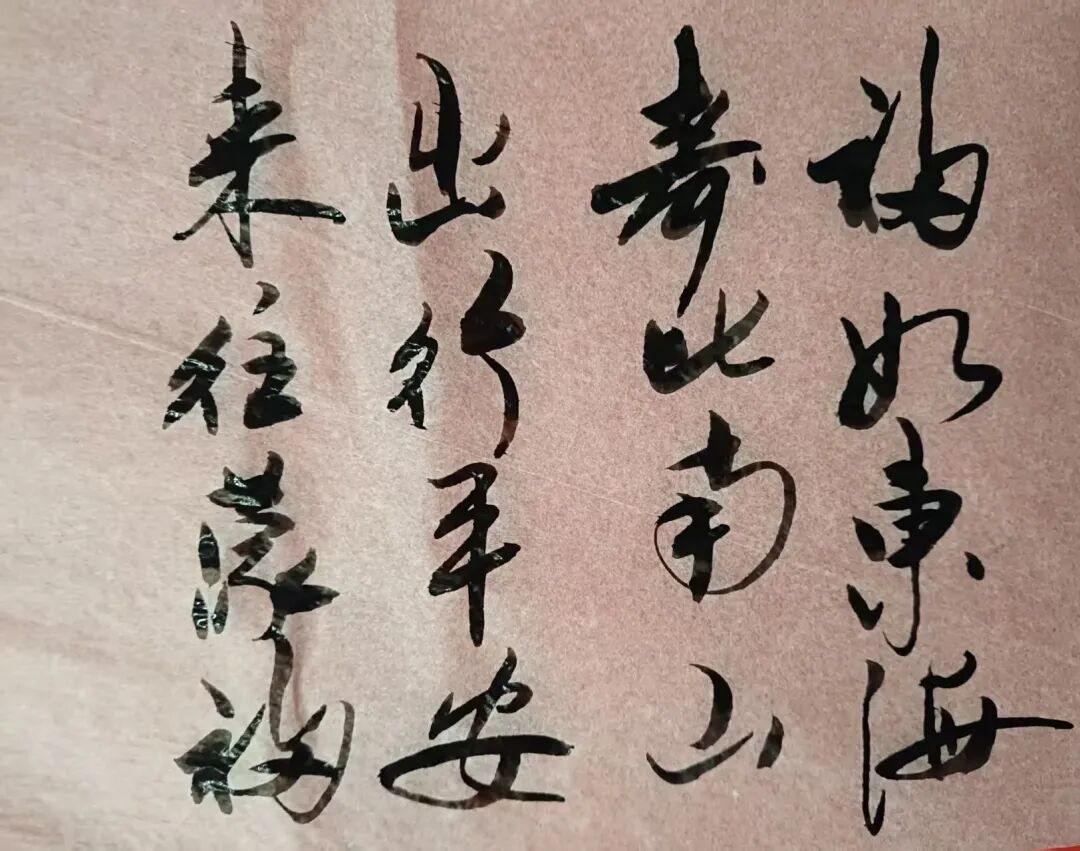 福如東海
寿比南山
出行平安
来往蒙福